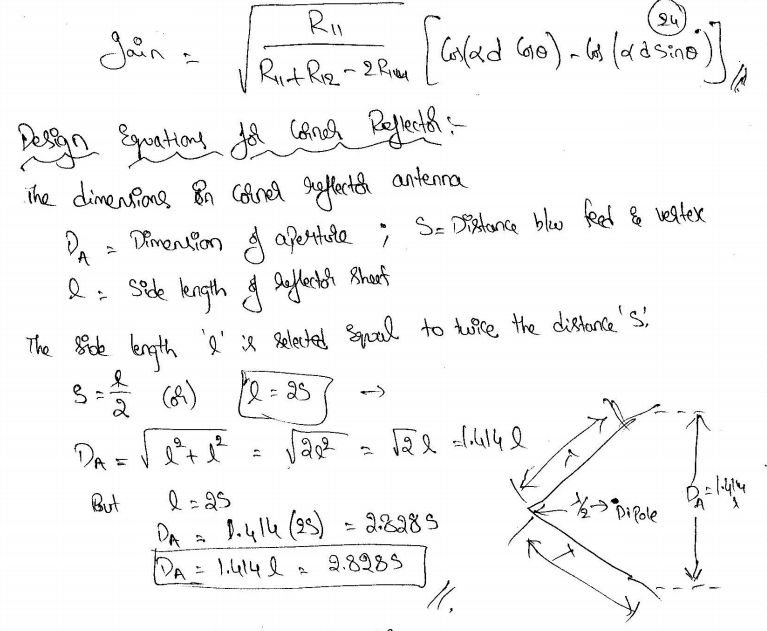 24
Gain = √(R11 / (R11 + R12 - 2R14)) [Cos(αd Cosθ) - Cos(αd Sinθ)]
Design Equations for Corner Reflector:-
The dimensions on Corner reflector antenna
D_A = Dimension of aperture ; S = Distance b/w feed & vertex
l = Side length of reflector Sheet
The side length 'l' is selected equal to twice the distance 'S'.
S = l/2 (or) l = 2S →
D_A = √(l² + l²) = √(2l²) = √2 l = 1.414 l
But l = 2S
D_A = 1.414 (2S) = 2.828 S
D_A = 1.414 l = 2.828 S
λ
λ/2 → Dipole
D_A = 1.414 l
λ